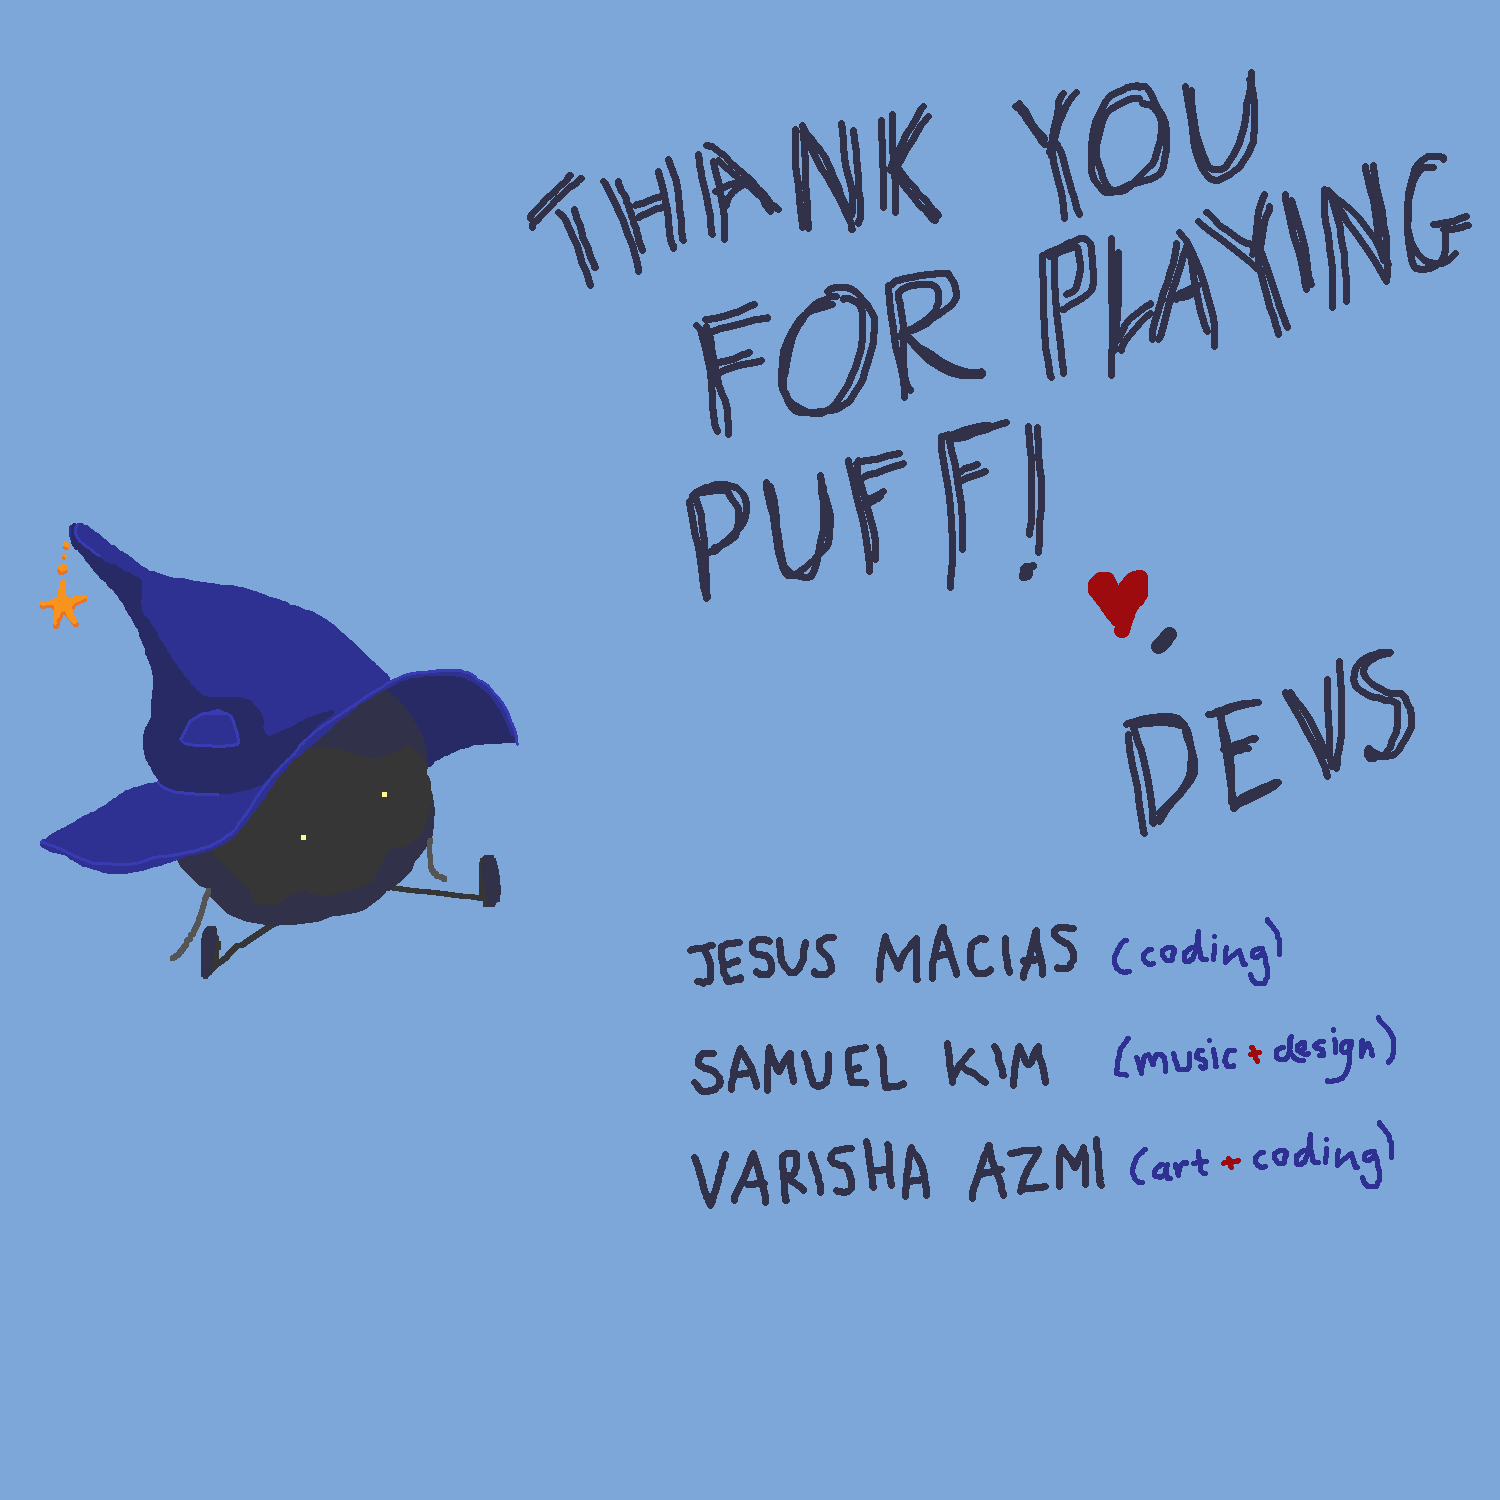 THANK YOU
FOR PLAYING
PUFF!
DEVS
JESUS MACIAS (coding)
SAMUEL KIM (music + design)
VARISHA AZMI (art + coding)